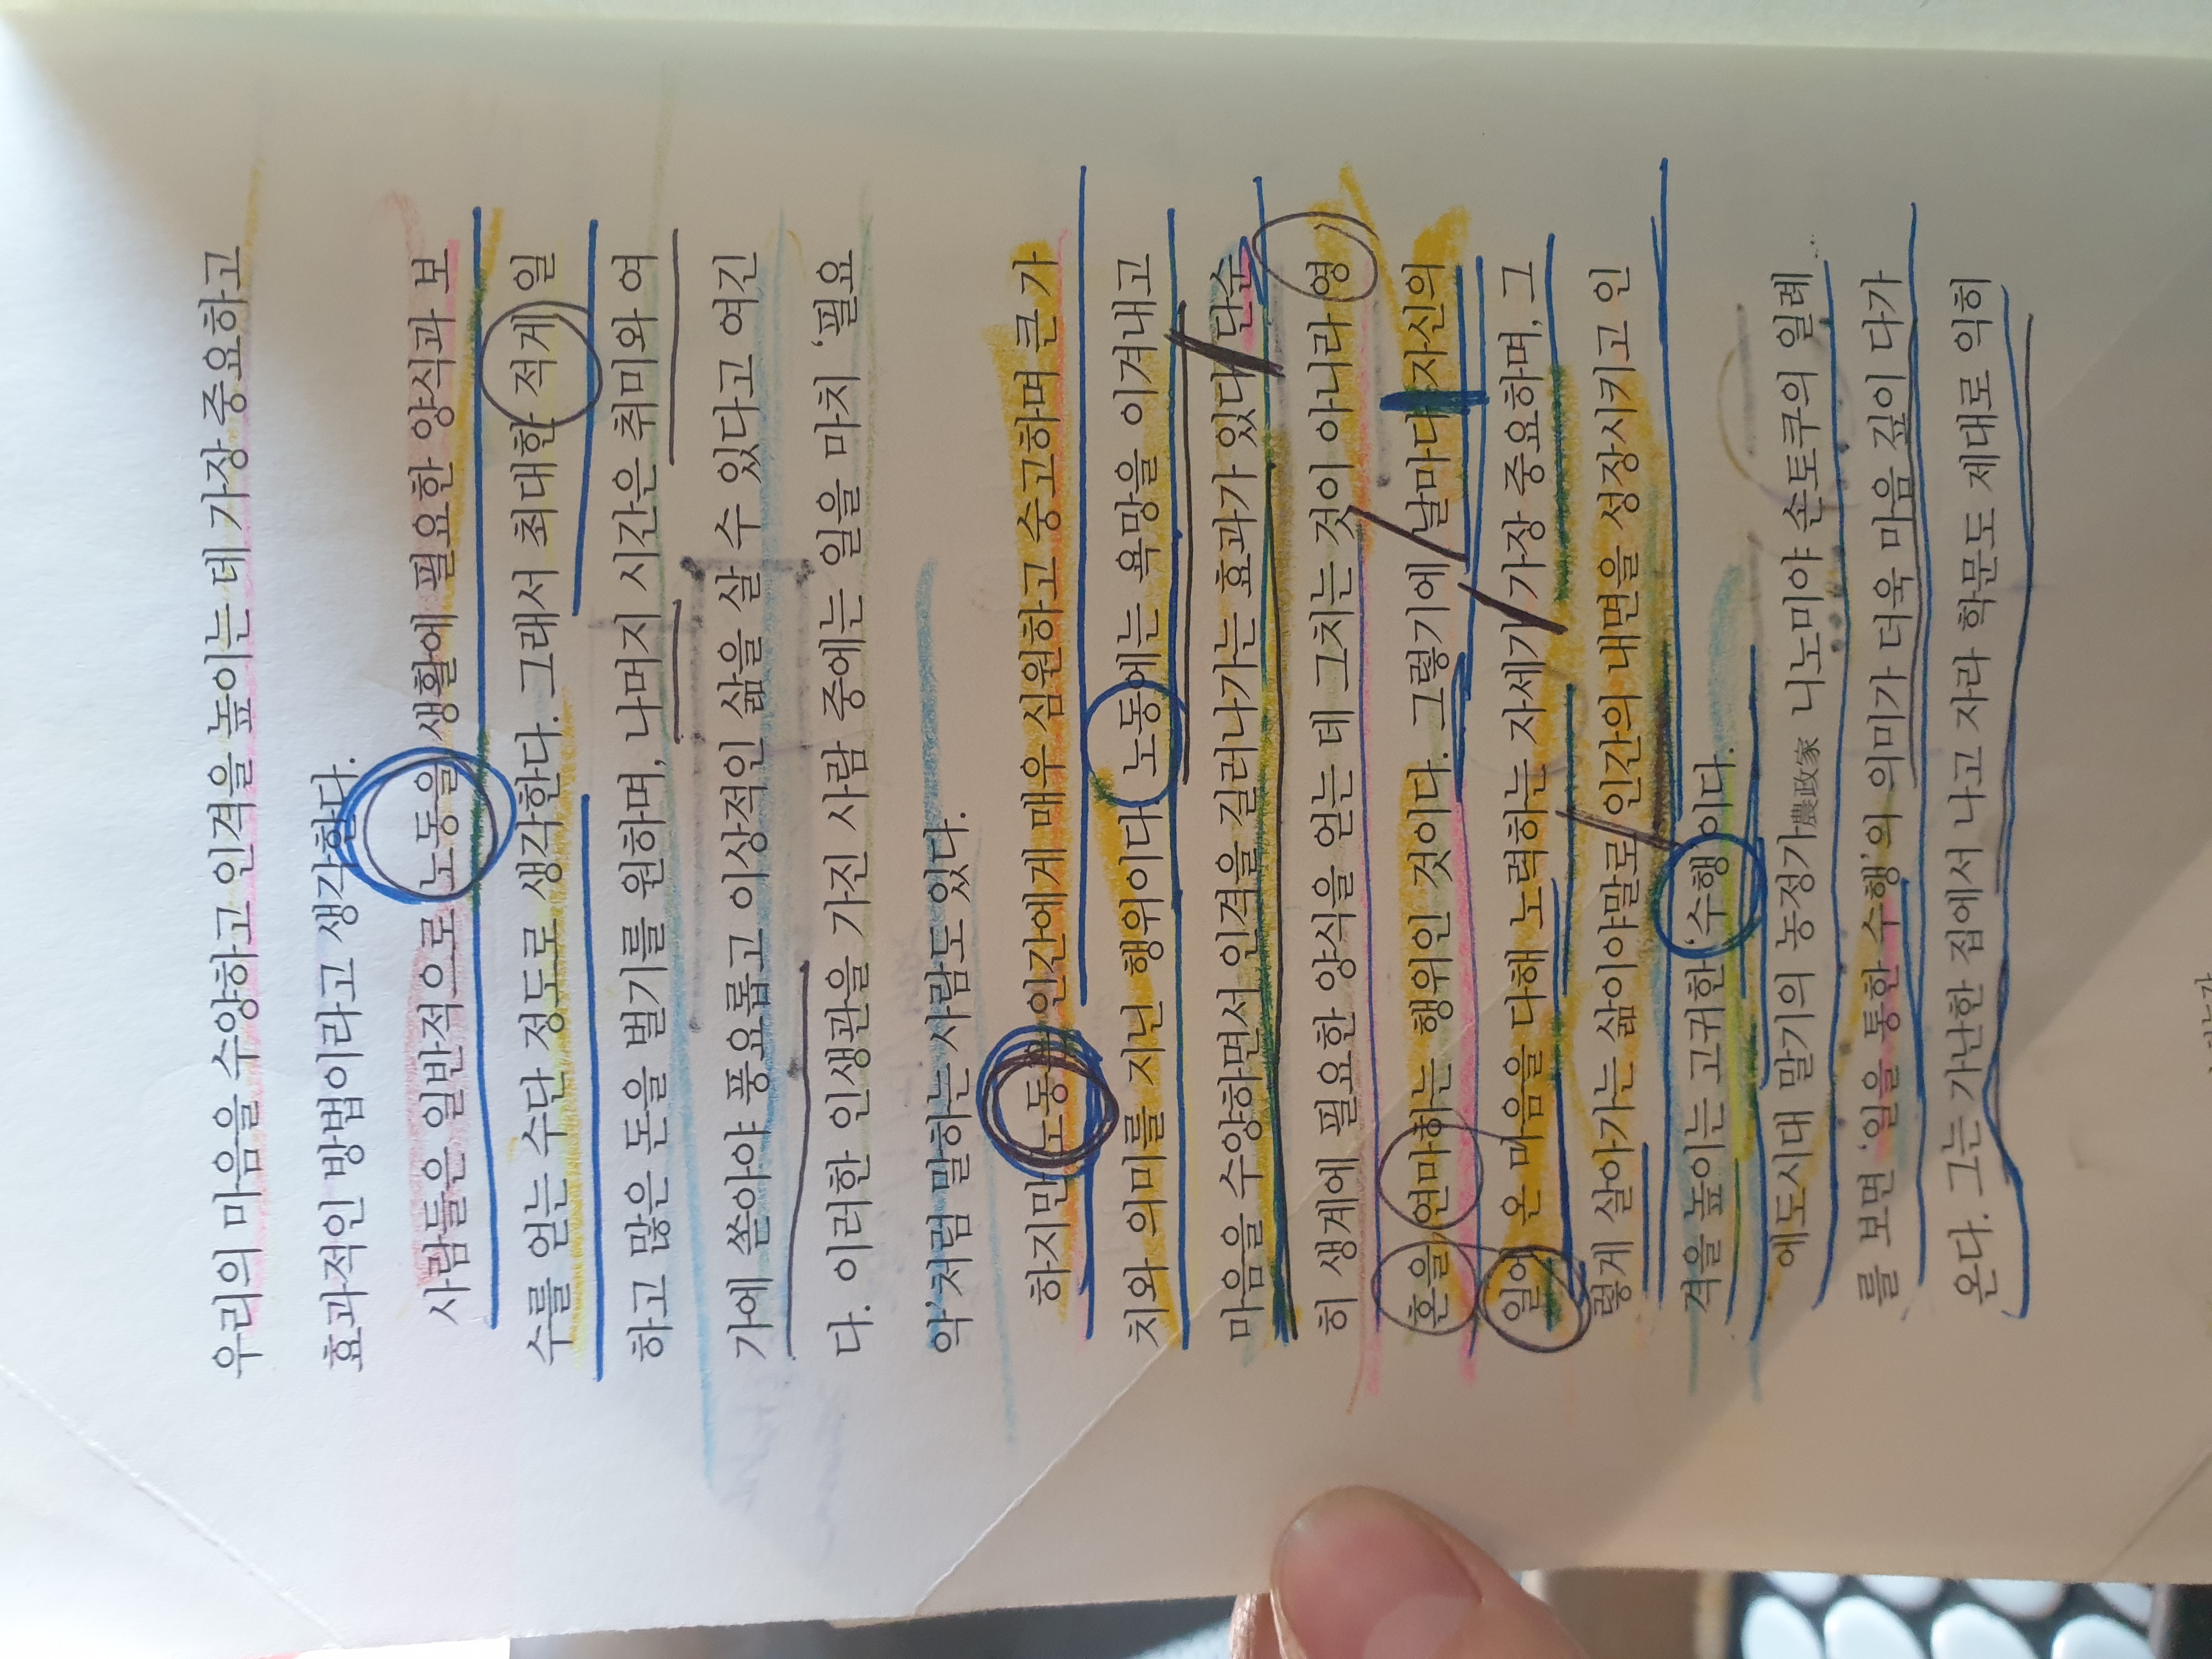 우리의 마음을 수양하고 인격을 높이는 데 가장 중요하고
효과적인 방법이라고 생각한다.
사람들은 일반적으로 노동을 생활에 필요한 양식과 보
수를 얻는 수단 정도로 생각한다. 그래서 최대한 적게 일
하고 많은 돈을 벌기를 원하며, 나머지 시간은 취미와 여
가에 쏟아야 풍요롭고 이상적인 삶을 살 수 있다고 여긴
다. 이러한 인생관을 가진 사람 중에는 일을 마치 ‘필요
악’처럼 말하는 사람도 있다.
하지만 노동은 인간에게 매우 심원하고 숭고하며 큰 가
치와 의미를 지닌 행위이다. 노동에는 욕망을 이겨내고
마음을 수양하면서 인격을 길러나가는 효과가 있다. 단순
히 생계에 필요한 양식을 얻는 데 그치는 것이 아니라 영
혼을 연마하는 행위인 것이다. 그렇기에 날마다 자신의
일에 온 마음을 다해 노력하는 자세가 가장 중요하며, 그
렇게 살아가는 삶이야말로 인간의 내면을 성장시키고 인
격을 높이는 고귀한 ‘수행’이다.
에도시대 말기의 농정가農政家 니노미야 손토쿠의 일례
를 보면 ‘일을 통한 수행’의 의미가 더욱 마음 깊이 다가
온다. 그는 가난한 집에서 나고 자라 학문도 제대로 익히